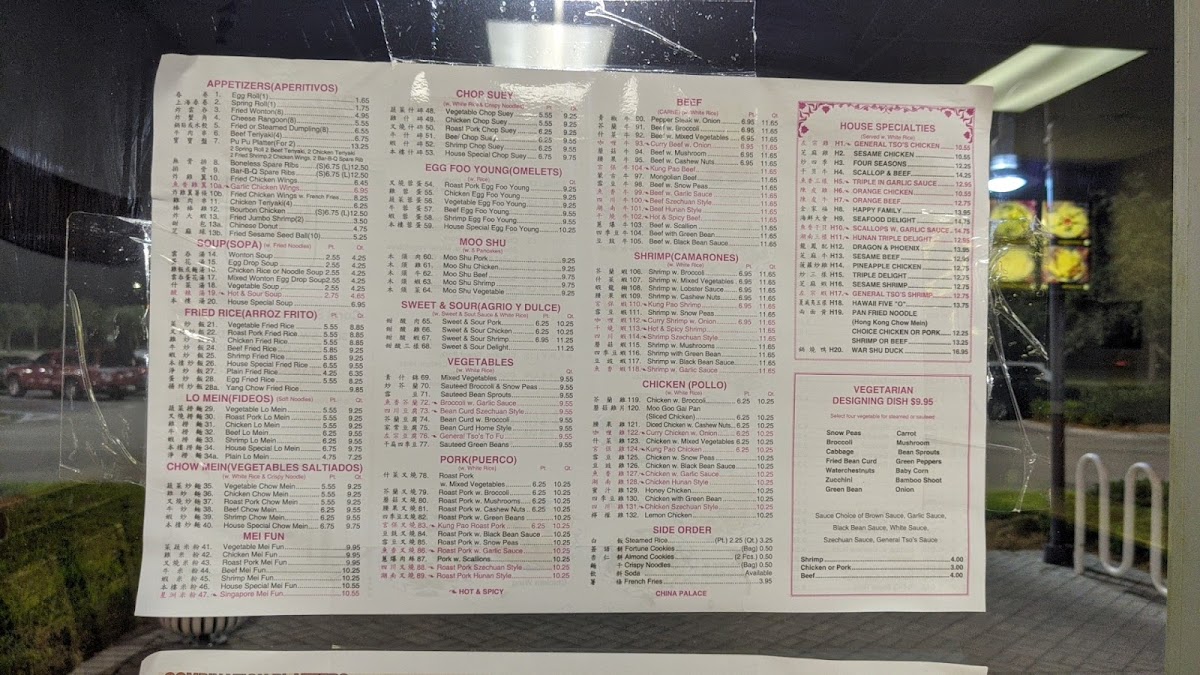 APPETIZERS(APERITIVOS)
春卷 1. Egg Roll(1) 1.65
上海春卷 2. Spring Roll(1) 1.75
炸雲吞 3. Fried Wonton(8) 4.95
炸蟹角 4. Cheese Rangoon(8) 5.55
5. Fried or Steamed Dumpling(8) 6.75
牛肉串 6. Beef Teriyaki(4)
寶寶盤 7. Pu Pu Platter(For 2) 13.25
2 Spring Roll 2 Beef Teriyaki, 2 Chicken Teriyaki
2 Fried Shrimp 2 Chicken Wings, 2 Bar-B-Q Spare Rib
無骨排 8. Boneless Spare Ribs (S)6.75 (L)12.50
排骨 9. Bar-B-Q Spare Ribs (S)6.75 (L)12.50
10. Fried Chicken Wings 6.45
10a. Garlic Chicken Wings 6.95
10b. Fried Chicken Wings w. French Fries 8.25
雞肉串 11. Chicken Teriyaki(4) 6.25
12. Bourbon Chicken (S)6.75 (L)12.50
炸大蝦 13. Fried Jumbo Shrimp(2) 3.50
13a. Chinese Donut 4.75
13b. Fried Sesame Seed Ball(10) 5.25
SOUP(SOPA) (w. Fried Noodles) Pt. Qt.
雲吞湯 14. Wonton Soup 2.55 4.25
蛋花湯 15. Egg Drop Soup 2.55 4.25
16. Chicken Rice or Noodle Soup 2.55 4.25
17. Mixed Wonton Egg Drop Soup 2.55 4.25
菜湯 18. Vegetable Soup 2.55 4.25
酸辣湯 19. Hot & Sour Soup 2.75 4.65
本樓湯 20. House Special Soup 6.95
FRIED RICE(ARROZ FRITO) Pt. Qt.
菜炒飯 21. Vegetable Fried Rice 5.55 8.85
叉燒炒飯 22. Roast Pork Fried Rice 5.55 8.85
雞炒飯 23. Chicken Fried Rice 5.55 8.85
牛炒飯 24. Beef Fried Rice 5.85 9.25
蝦炒飯 25. Shrimp Fried Rice 5.85 9.25
本樓炒飯 26. House Special Fried Rice 6.55 9.55
淨炒飯 27. Plain Fried Rice 4.25 6.35
蛋炒飯 28. Egg Fried Rice 5.55 8.25
揚州炒飯 28a. Yang Chow Fried Rice 9.85
LO MEIN(FIDEOS) (Soft Noodles) Pt. Qt.
蔬菜撈麵 29. Vegetable Lo Mein 5.55 9.25
叉燒撈麵 30. Roast Pork Lo Mein 5.55 9.25
雞撈麵 31. Chicken Lo Mein 5.55 9.25
牛撈麵 32. Beef Lo Mein 5.55 9.25
蝦撈麵 33. Shrimp Lo Mein 5.55 9.25
本樓撈麵 34. House Special Lo Mein 6.75 9.75
淨撈麵 34a. Plain Lo Mein 4.75 7.25
CHOW MEIN(VEGETABLES SALTIADOS)
(w. White Rice & Crispy Noodle) Pt. Qt.
蔬菜炒麵 35. Vegetable Chow Mein 5.55 9.25
雞炒麵 36. Chicken Chow Mein 5.55 9.25
叉燒炒麵 37. Roast Pork Chow Mein 5.55 9.25
牛炒麵 38. Beef Chow Mein 6.25 9.25
蝦炒麵 39. Shrimp Chow Mein 6.25 9.25
本樓炒麵 40. House Special Chow Mein 6.75 9.75
MEI FUN
菜蔬米粉 41. Vegetable Mei Fun 9.95
雞米粉 42. Chicken Mei Fun 9.95
叉燒米粉 43. Roast Pork Mei Fun 9.95
牛米粉 44. Beef Mei Fun 10.25
蝦米粉 45. Shrimp Mei Fun 10.25
本樓米粉 46. House Special Mei Fun 10.25
星洲米粉 47. Singapore Mei Fun 10.55
CHOP SUEY
(w. White Rice & Crispy Noodles) Pt. Qt.
蔬菜什碎 48. Vegetable Chop Suey 5.55 9.25
雞什碎 49. Chicken Chop Suey 6.25 9.25
叉燒什碎 50. Roast Pork Chop Suey 6.25 9.25
牛什碎 51. Beef Chop Suey 6.25 9.25
蝦什碎 52. Shrimp Chop Suey 6.25 9.25
本樓什碎 53. House Special Chop Suey 6.75 9.75
EGG FOO YOUNG(OMELETS)
(w. Rice)
叉燒蓉蛋 54. Roast Pork Egg Foo Young 9.25
雞蓉蛋 55. Chicken Egg Foo Young 9.25
蔬菜蓉蛋 56. Vegetable Egg Foo Young 9.25
牛蓉蛋 57. Beef Egg Foo Young 9.25
蝦蓉蛋 58. Shrimp Egg Foo Young 9.25
本樓蓉蛋 59. House Special Egg Foo Young 10.25
MOO SHU
(w. 5 Pancakes)
木須肉 60. Moo Shu Pork 9.25
木須雞 61. Moo Shu Chicken 9.25
木須牛 62. Moo Shu Beef 9.25
木須蝦 63. Moo Shu Shrimp 9.25
木須菜 64. Moo Shu Vegetable 9.25
SWEET & SOUR(AGRIO Y DULCE)
(w. Sweet & Sour Sauce & White Rice) Pt. Qt.
甜酸肉 65. Sweet & Sour Pork 6.25 10.25
甜酸雞 66. Sweet & Sour Chicken 6.25 10.25
甜酸蝦 67. Sweet & Sour Shrimp 6.95 11.25
甜酸三樣 68. Sweet & Sour Delight 11.25
VEGETABLES
(w. White Rice)
素什錦 69. Mixed Vegetables 9.55
炒芥蘭 70. Sauteed Broccoli & Snow Peas 9.55
雪豆 71. Sauteed Snow Peas 9.55
魚香芥蘭 72. Broccoli w. Garlic Sauce 9.55
四川豆腐 73. Bean Curd Szechuan Style 9.55
芥蘭豆腐 74. Bean Curd w. Broccoli 9.55
家常豆腐 75. Bean Curd Home Style 9.55
左宗豆腐 76. General Tso's To Fu 9.55
干煸四季豆 77. Sauteed Green Beans 9.55
PORK(PUERCO)
(w. White Rice) Pt. Qt.
什菜叉燒 78. Roast Pork
w. Mixed Vegetables 6.25 10.25
芥蘭叉燒 79. Roast Pork w. Broccoli 6.25 10.25
蘑菇叉燒 80. Roast Pork w. Mushrooms 6.25 10.25
腰果叉燒 81. Roast Pork w. Cashew Nuts 6.25 10.25
四季豆叉燒 82. Roast Pork w. Green Beans 10.25
宮保叉燒 83. Kung Pao Roast Pork 6.25 10.25
豆豉叉燒 84. Roast Pork w. Black Bean Sauce 10.25
雪豆叉燒 85. Roast Pork w. Snow Peas 10.25
魚香叉燒 86. Roast Pork w. Garlic Sauce 10.25
蔥爆肉絲 87. Pork w. Scallions 10.25
四川叉燒 88. Roast Pork Szechuan Style 10.25
湖南叉燒 89. Roast Pork Hunan Style 10.25
HOT & SPICY
BEEF
(CARNE) (w. White Rice) Pt. Qt.
青椒牛 90. Pepper Steak w. Onion 6.95 11.65
芥蘭牛 91. Beef w. Broccoli 6.95 11.65
什菜牛 92. Beef w. Mixed Vegetables 6.95 11.65
咖哩牛 93. Curry Beef w. Onion 6.95 11.65
蘑菇牛 94. Beef w. Mushroom 6.95 11.65
腰果牛 95. Beef w. Cashew Nuts 6.95 11.65
宮保牛 104. Kung Pao Beef 11.65
蒙古牛 97. Mongolian Beef 11.65
雪豆牛 98. Beef w. Snow Peas 11.65
魚香牛 99. Beef w. Garlic Sauce 11.65
四川牛 100. Beef Szechuan Style 11.65
湖南牛 101. Beef Hunan Style 11.65
干燒牛 102. Hot & Spicy Beef 11.65
蔥爆牛 103. Beef w. Scallion 11.65
四季豆牛 104. Beef with Green Bean 11.65
豆豉牛 105. Beef w. Black Bean Sauce 11.65
SHRIMP(CAMARONES)
(w. White Rice) Pt. Qt.
芥蘭蝦 106. Shrimp w. Broccoli 6.95 11.65
什菜蝦 107. Shrimp w. Mixed Vegetables 6.95 11.65
蝦龍糊 108. Shrimp w. Lobster Sauce 6.95 11.65
腰果蝦 109. Shrimp w. Cashew Nuts 6.95 11.65
宮保蝦 110. Kung Pao Shrimp 6.95 11.65
雪豆蝦 111. Shrimp w. Snow Peas 11.65
咖哩蝦 112. Curry Shrimp w. Onion 6.95 11.65
干燒蝦 113. Hot & Spicy Shrimp 11.65
四川蝦 114. Shrimp Szechuan Style 11.65
蘑菇蝦 115. Shrimp w. Mushrooms 11.65
四季豆蝦 116. Shrimp with Green Bean 11.65
豆豉蝦 117. Shrimp w. Black Bean Sauce 11.65
魚香蝦 118. Shrimp w. Garlic Sauce 11.65
CHICKEN (POLLO)
(w. White Rice) Pt. Qt.
芥蘭雞 119. Chicken w. Broccoli 6.25 10.25
蘑菇雞片 120. Moo Goo Gai Pan
(Sliced Chicken) 6.25 10.25
腰果雞 121. Diced Chicken w. Cashew Nuts 6.25 10.25
咖哩雞 122. Curry Chicken w. Onion 6.25 10.25
什菜雞 123. Chicken w. Mixed Vegetables 6.25 10.25
宮保雞 124. Kung Pao Chicken 6.25 10.25
雪豆雞 125. Chicken w. Snow Peas 10.25
豆豉雞 126. Chicken w. Black Bean Sauce 10.25
魚香雞 127. Chicken w. Garlic Sauce 10.25
湖南雞 128. Chicken Hunan Style 10.25
蜜汁雞 129. Honey Chicken 10.25
四季豆雞 130. Chicken with Green Bean 10.25
四川雞 131. Chicken Szechuan Style 10.25
檸檬雞 132. Lemon Chicken 10.25
SIDE ORDER
白飯 Steamed Rice (Pt.) 2.25 (Qt.) 3.25
簽語餅 Fortune Cookies (Bag) 0.50
杏仁餅 Almond Cookies (2 Pcs.) 0.50
麵干 Crispy Noodles (Bag) 0.50
飲料 Soda Available
薯條 French Fries 3.95
CHINA PALACE
HOUSE SPECIALTIES
(Served w. White Rice)
左宗雞 H1. GENERAL TSO'S CHICKEN 10.55
芝麻雞 H2. SESAME CHICKEN 10.55
炒四季 H3. FOUR SEASONS 12.25
干貝牛 H4. SCALLOP & BEEF 14.25
魚香三樣 H5. TRIPLE IN GARLIC SAUCE 12.95
陳皮雞 H6. ORANGE CHICKEN 10.55
陳皮牛 H7. ORANGE BEEF 12.75
全家福 H8. HAPPY FAMILY 13.95
海鮮大會 H9. SEAFOOD DELIGHT 14.75
魚香干貝 H10. SCALLOPS W. GARLIC SAUCE 14.75
湖南三樣 H11. HUNAN TRIPLE DELIGHT 12.95
龍鳳配 H12. DRAGON & PHOENIX 13.95
芝麻牛 H13. SESAME BEEF 12.75
菠蘿炒雞 H14. PINEAPPLE CHICKEN 10.55
炒三樣 H15. TRIPLE DELIGHT 12.75
芝麻蝦 H16. SESAME SHRIMP 12.75
左宗蝦 H17. GENERAL TSO'S SHRIMP 12.75
夏威夷五"O" H18. HAWAII FIVE "O" 13.95
兩面黃 H19. PAN FRIED NOODLE
(Hong Kong Chow Mein)
CHOICE CHICKEN OR PORK 12.25
SHRIMP OR BEEF 13.25
鍋燒鴨 H20. WAR SHU DUCK 16.95
VEGETARIAN
DESIGNING DISH $9.95
Select four vegetable for steamed or sauteed
Snow Peas Carrot
Broccoli Mushroom
Cabbage Bean Sprouts
Fried Bean Curd Green Peppers
Waterchestnuts Baby Corn
Zucchini Bamboo Shoot
Green Bean Onion
Sauce Choice of Brown Sauce, Garlic Sauce,
Black Bean Sauce, White Sauce,
Szechuan Sauce, General Tso's Sauce
Shrimp 4.00
Chicken or Pork 3.00
Beef 4.00